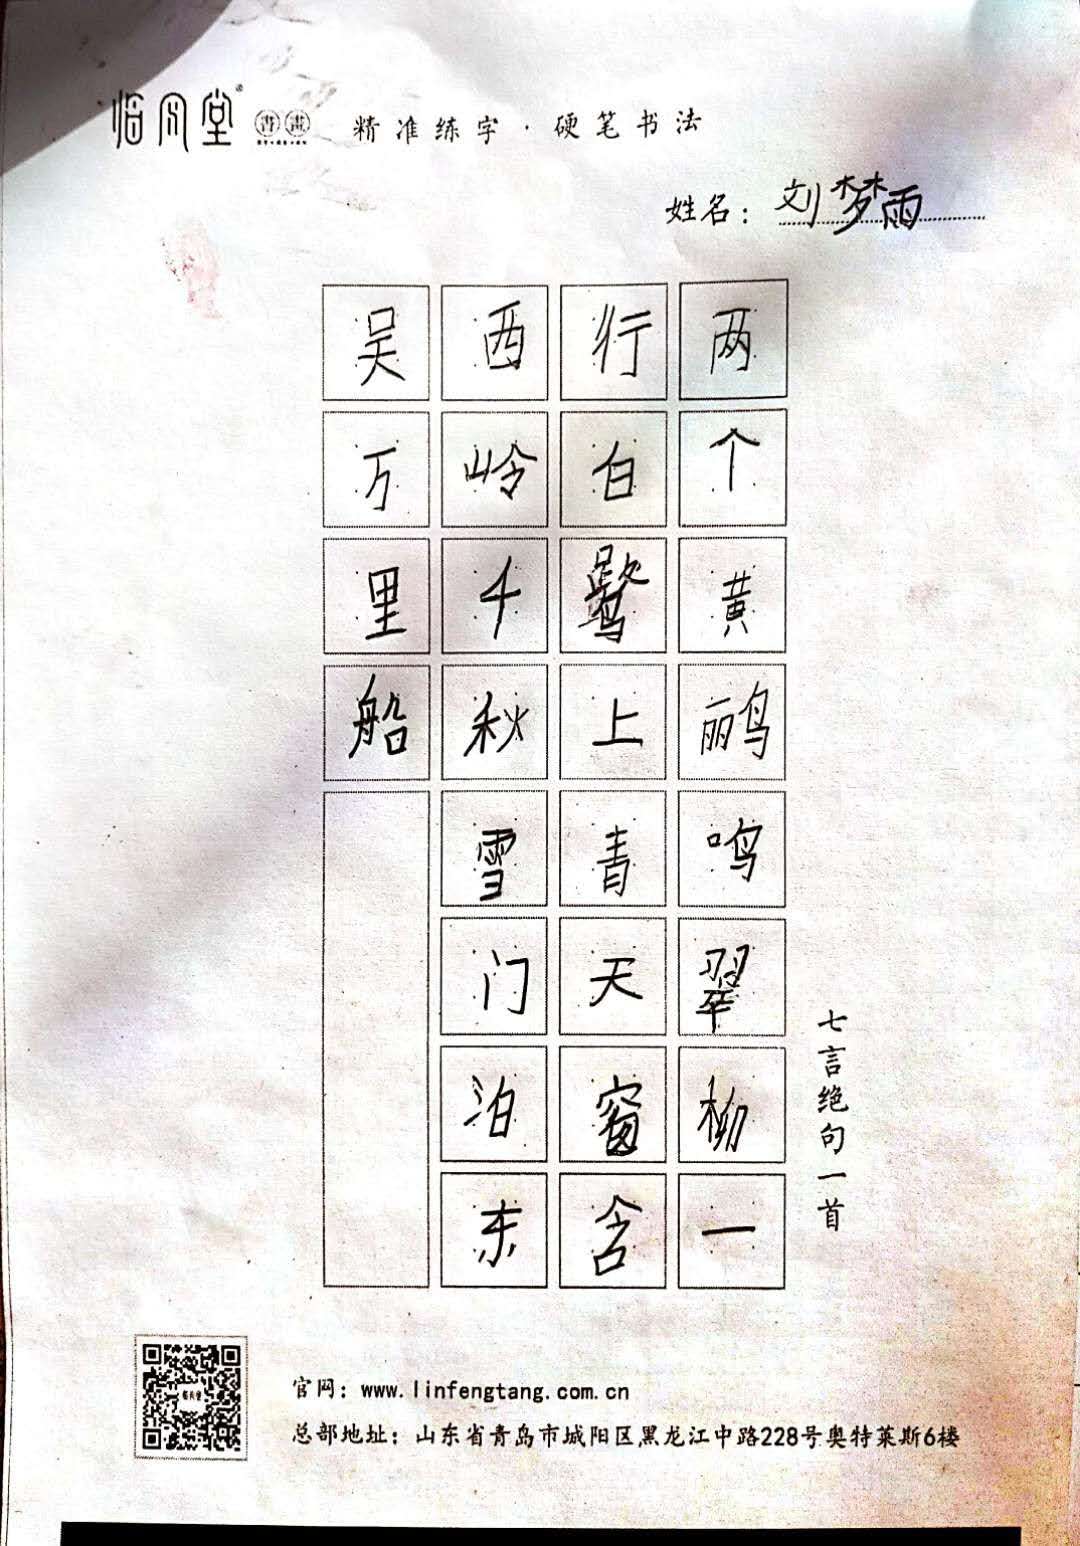 临风堂 書畫 精准练字·硬笔书法
姓名：刘梦雨
七言绝句一首
两个黄鹂鸣翠柳一
行白鹭上青天窗含
西岭千秋雪门泊东
吴万里船
官网：www.linfengtang.com.cn
总部地址：山东省青岛市城阳区黑龙江中路228号奥特莱斯6楼